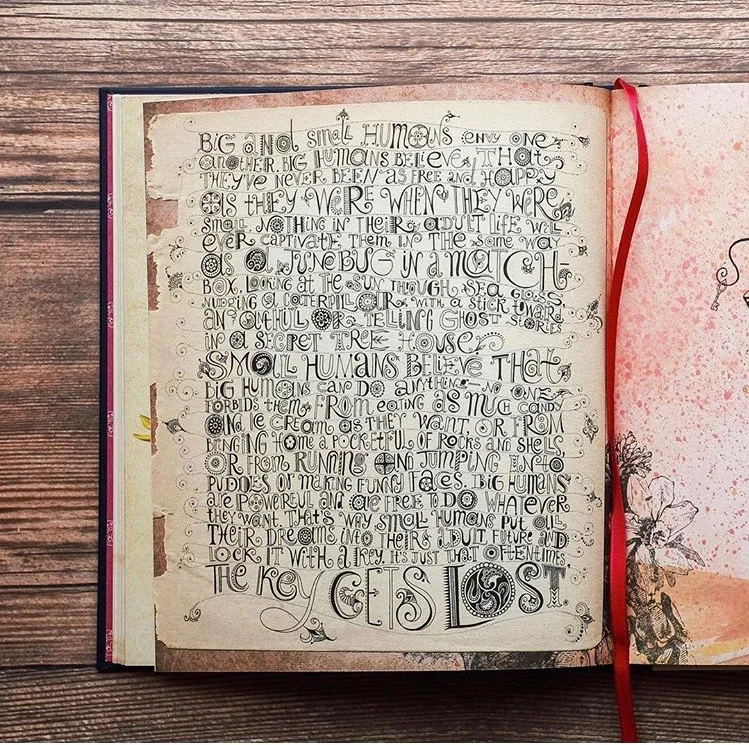 BIG and small HUMANS envy one
another. BIG HUMANS BELIEVE THAT
THEY'VE NEVER BEEN AS FREE and HAPPY
as they WERE WHEN THEY WERE
small. NOTHING IN THEIR ADULT LIFE WILL
EVER CAPTIVATE THEM IN THE SAME WAY
as a JUNEBUG IN a MATCH-
BOX, LOOKING AT THE SUN THROUGH SEA GLASS,
NUDGING A CATERPILLAR WITH a STICK TOWARD
AN ANTHILL OR TELLING GHOST STORIES
in a SECRET TREE HOUSE.
SMALL HUMANS BELIEVE THAT
BIG HUMANS CAN DO ANYTHING—NO ONE
FORBIDS them FROM eating as much CANDY
AND ICE CREAM as they WANT, OR FROM
BRINGING HOME A POCKETFUL OF ROCKS AND SHELLS
OR FROM RUNNING AND JUMPING INTO
PUDDLES OR MAKING FUNNY FACES. BIG HUMANS
are POWERFUL and are FREE TO DO WHATEVER
they WANT. THAT'S WHY SMALL HUMANS PUT ALL
THEIR DREAMS INTO THEIR ADULT FUTURE AND
LOCK IT WITH A KEY. IT'S JUST THAT OFTENTIMES,
THE KEY GETS LOST.